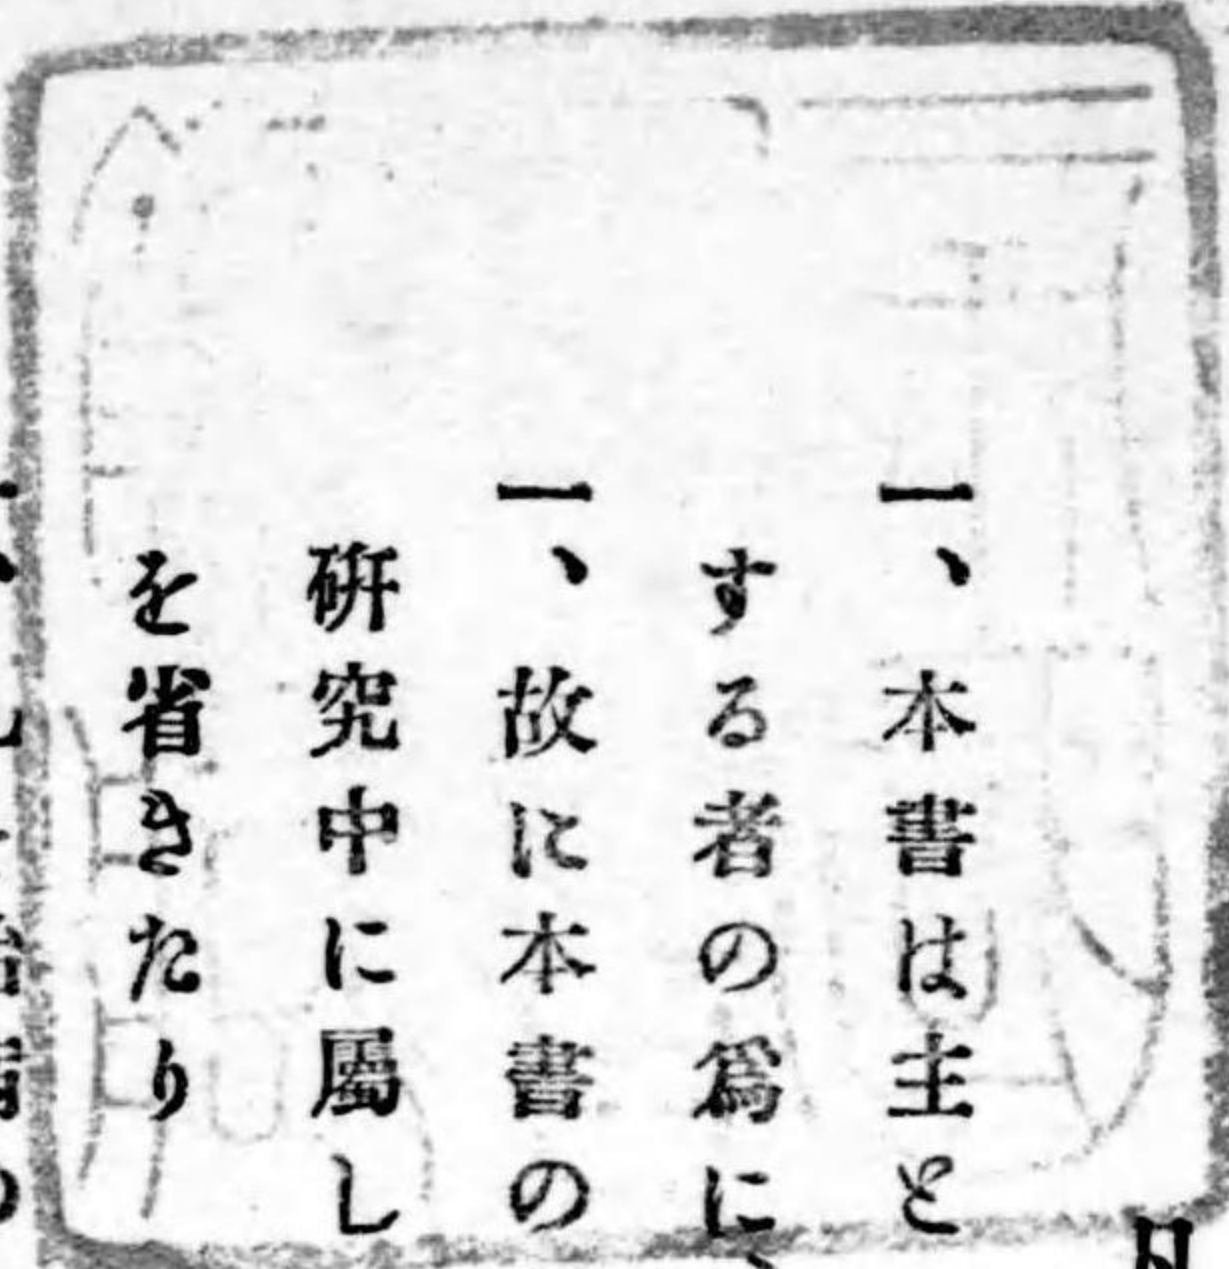 一、本書は主と
する者の爲に、
一、故に本書の
硏究中に屬し
を省きたり